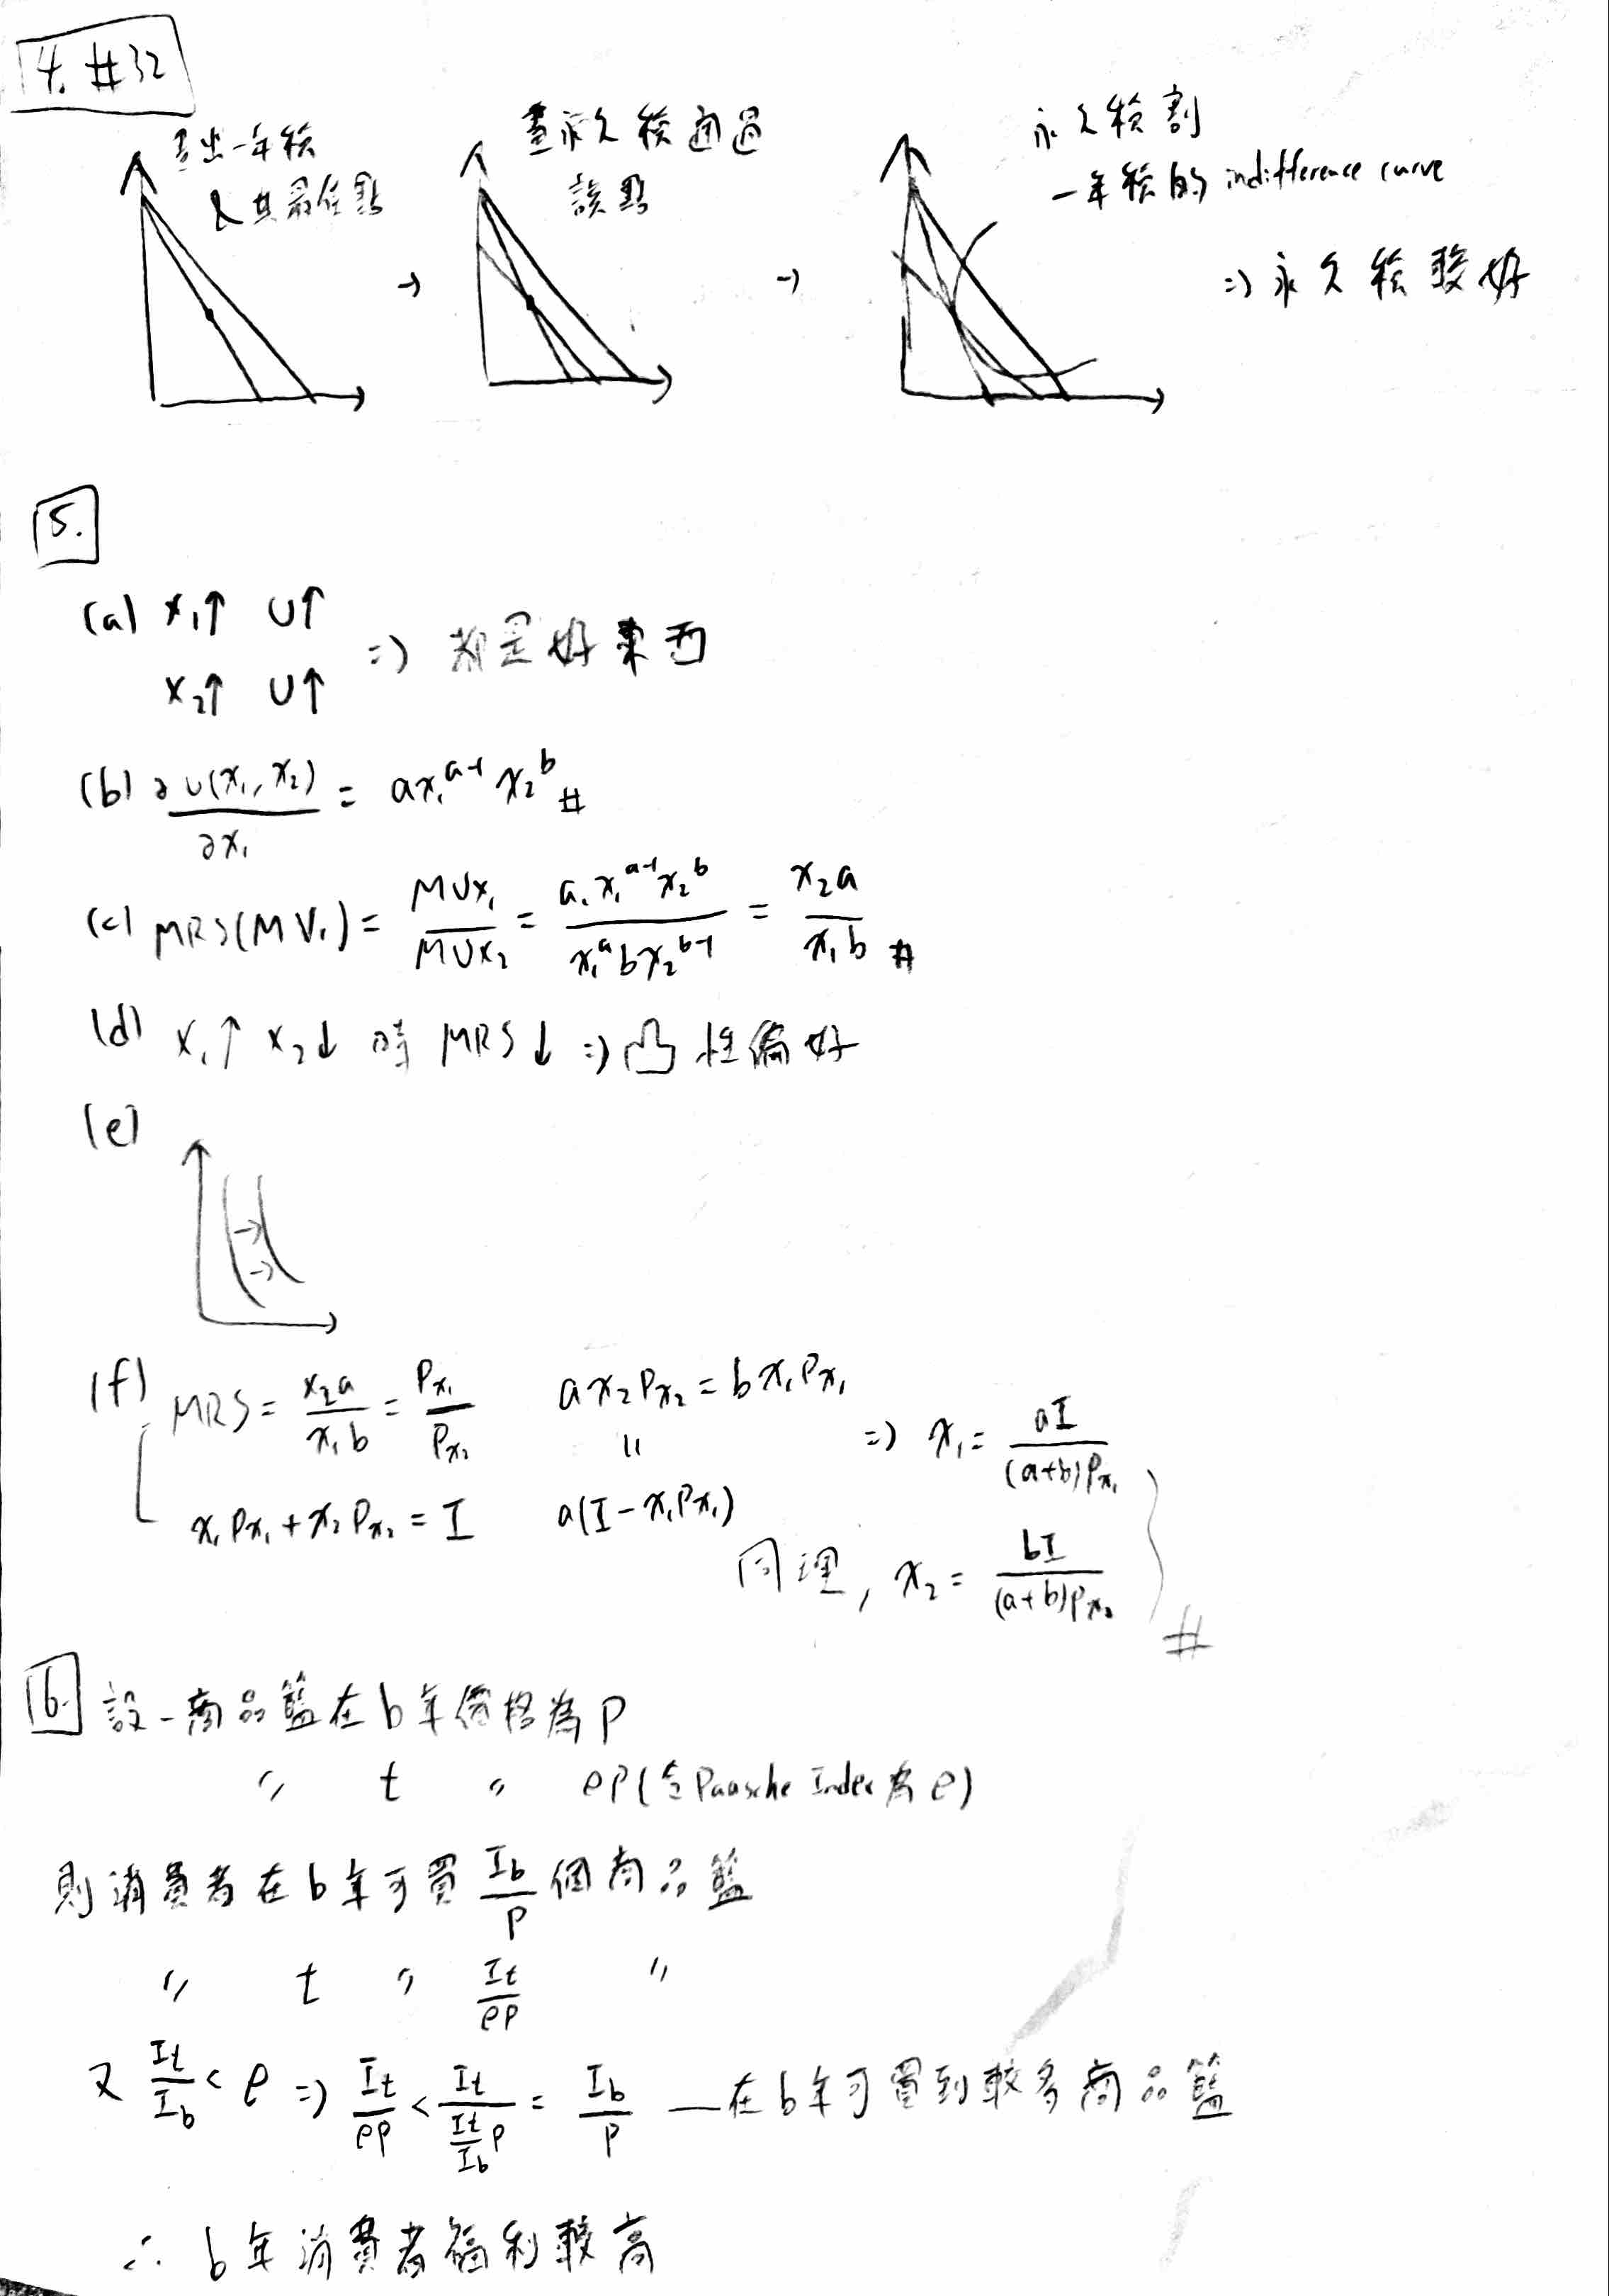 4. #32
畫出一年稅
& 其最佳點
畫永久稅通過
該點
永久稅割
一年稅的 indifference curve
→ → ⇒ 永久稅較好
5.
(a) x₁↑ U↑
x₂↑ U↑ ⇒ 都是好東西
(b) ∂U(x₁, x₂)/∂x₁ = ax₁^(a-1) x₂^b #
(c) MRS(MV₁) = MUx₁/MUx₂ = a·x₁^(a-1)x₂^b / x₁^a bx₂^(b-1) = x₂a/x₁b #
(d) x₁↑ x₂↓ 時 MRS↓ ⇒ 凸性偏好
(e)
(f) MRS = x₂a/x₁b = Px₁/Px₂ ax₂Px₂ = bx₁Px₁ ⇒ x₁ = aI/(a+b)Px₁
x₁Px₁ + x₂Px₂ = I 〃 a(I - x₁Px₁)
同理, x₂ = bI/(a+b)Px₂ #
6. 設一商品籃在b年價格為P
〃 t 〃 eP (令Paasche Index為e)
則消費者在b年可買 Ib/P 個商品籃
〃 t 〃 It/eP 〃
又 It/Ib < e ⇒ It/eP < It/(It/Ib P) = Ib/P — 在b年可買到較多商品籃
∴ b年消費者福利較高